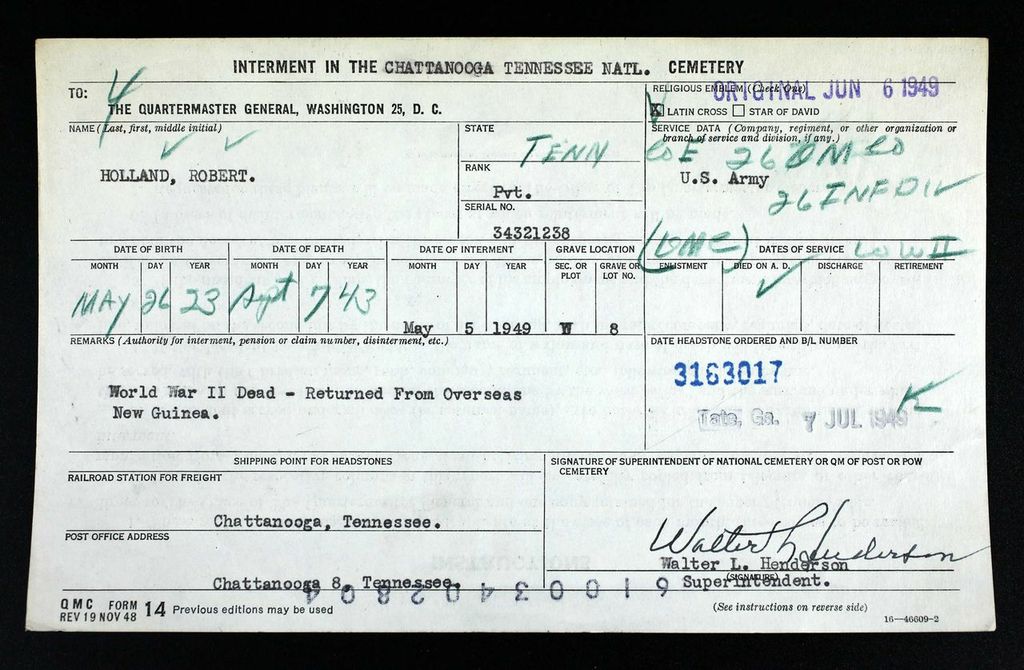 INTERMENT IN THE CHATTANOOGA TENNESSEE NATL. CEMETERY
TO:
THE QUARTERMASTER GENERAL, WASHINGTON 25, D. C.
RELIGIOUS EMBLEM (Check One)
ORIGINAL JUN 6 1949
X LATIN CROSS STAR OF DAVID
NAME (Last, first, middle initial)
HOLLAND, ROBERT.
STATE
TENN
RANK
Pvt.
SERIAL NO.
34321238
SERVICE DATA (Company, regiment, or other organization or
branch of service and division, if any.)
Co E 26 QM Co
U.S. Army
26 INF DIV
DATE OF BIRTH
MONTH DAY YEAR
MAY 26 23
DATE OF DEATH
MONTH DAY YEAR
Sept 7 43
DATE OF INTERMENT
MONTH DAY YEAR
May 5 1949
GRAVE LOCATION
SEC. OR PLOT GRAVE OR LOT NO.
W 8
(QMC) DATES OF SERVICE WW II
ENLISTMENT DIED ON A. D. DISCHARGE RETIREMENT
REMARKS (Authority for interment, pension or claim number, disinterment, etc.)
World War II Dead - Returned From Overseas
New Guinea.
DATE HEADSTONE ORDERED AND B/L NUMBER
3163017
Tate, Ga. 7 JUL 1949
SHIPPING POINT FOR HEADSTONES
RAILROAD STATION FOR FREIGHT
Chattanooga, Tennessee.
POST OFFICE ADDRESS
Chattanooga 8, Tennessee.
SIGNATURE OF SUPERINTENDENT OF NATIONAL CEMETERY OR QM OF POST OR POW
CEMETERY
Walter L. Henderson
Walter L. Henderson
(SIGNATURE)
Superintendent.
61003402804
QMC FORM 14 Previous editions may be used
REV 19 NOV 48
(See instructions on reverse side)
16—46609-2